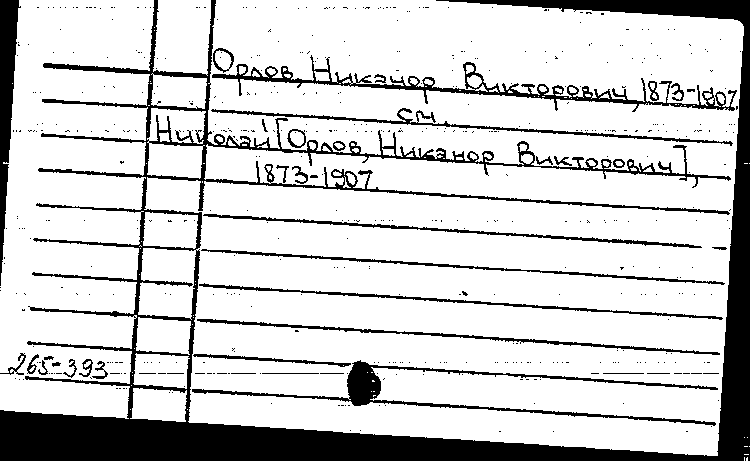 Орлов, Никанор Викторович, 1873-1907.
см.
Николай [Орлов, Никанор Викторович],
1873-1907.
265-393